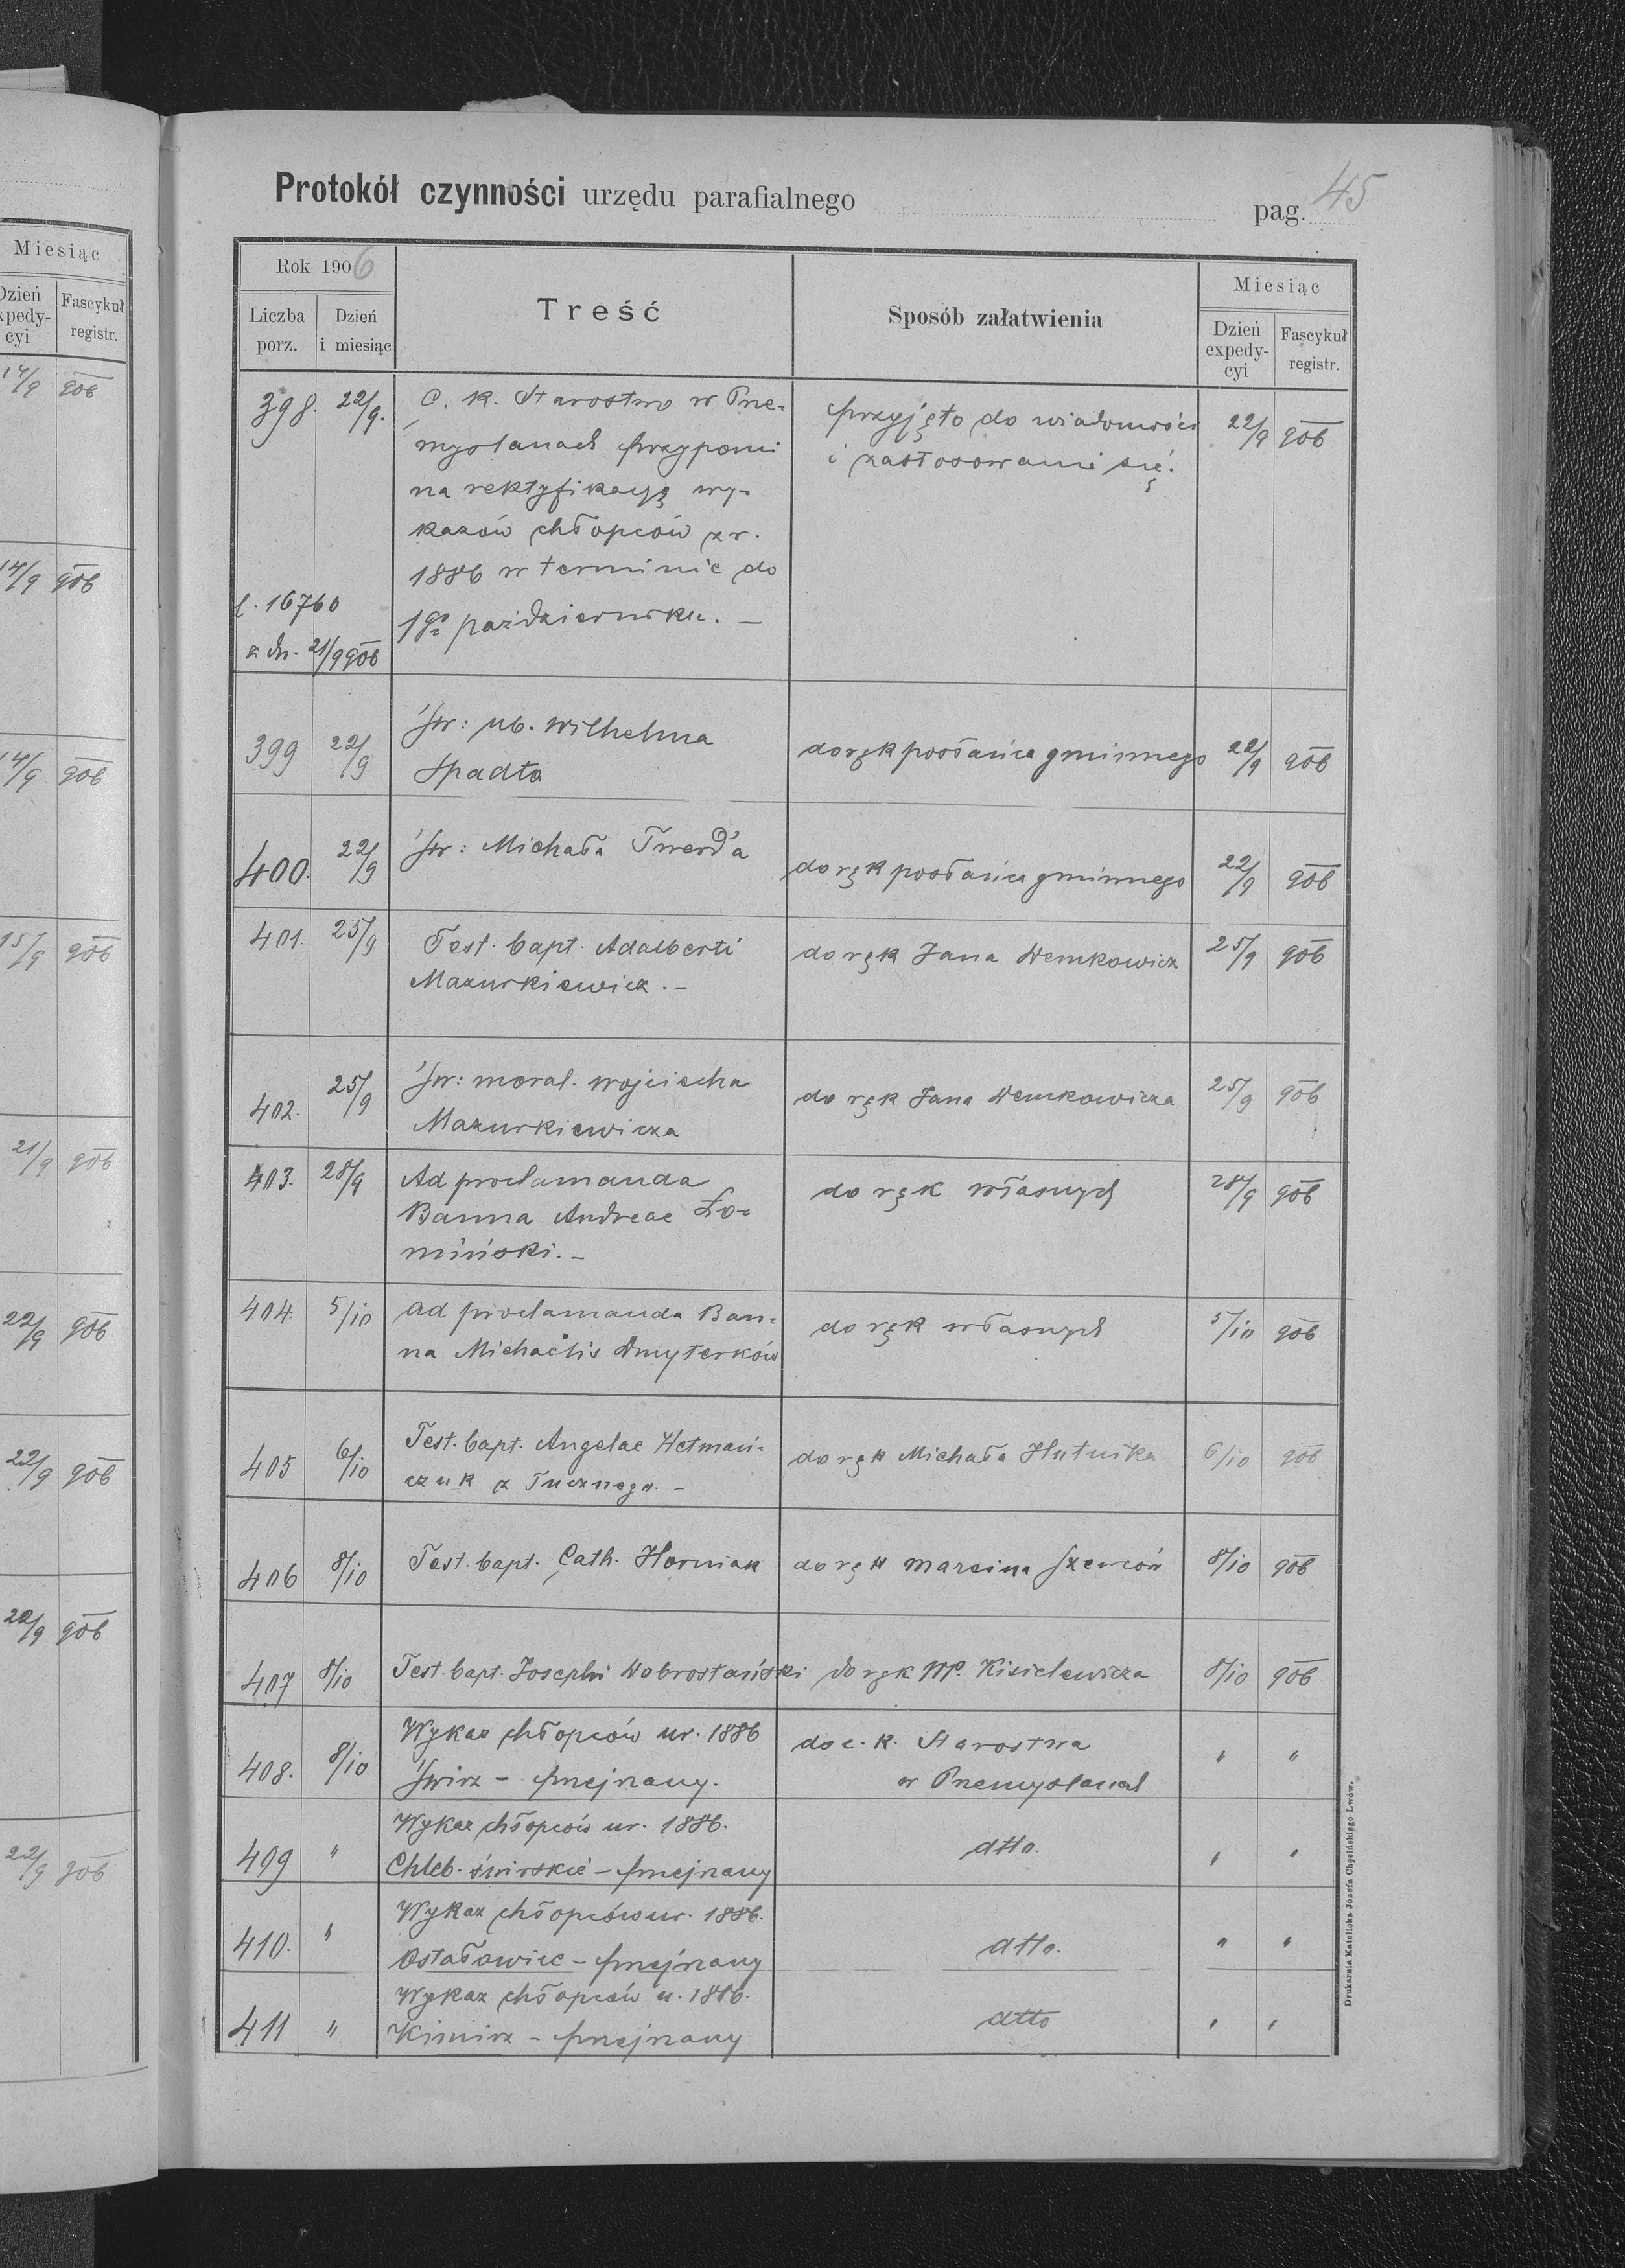 Miesiąc
Dzień
expedy-
cyi
Fascykuł
registr.
14/9 906
14/9 906
14/9 906
15/9 906
21/9 906
22/9 906
22/9 906
22/9 906
22/9 906
Protokół czynności urzędu parafialnego pag. 45
Rok 1906
Liczba porz.
Dzień i miesiąc
Treść
Sposób załatwienia
Miesiąc
Dzień expedy-cyi
Fascykuł registr.
398. 22/9. C. K. Starostwo w Prze- przyjęto do wiadomości 22/9 906
myślanach przypomi i zastosowania się.
na rektyfikacyę wy-
kazów chłopców z r.
1886 w terminie do
l. 16760
1go października. —
z dn. 21/9 906
399 22/9 Św: ub. Wilhelma
Spadła do rąk posłańca gminnego 22/9 906
400. 22/9 Św: Michała Twerd'a do rąk posłańca gminnego 22/9 906
401. 25/9 Test. bapt. Adalberti do rąk Jana Demkowicz 25/9 906
Mazurkiewicz. —
402. 25/9 Św: moral. Wojciecha do rąk Jana Demkowicza 25/9 906
Mazurkiewicza
403. 28/9 Ad proclamanda do rąk własnych 28/9 906
Banna Andreae Ło-
miński. —
404. 5/10 ad proclamanda Ban- do rąk własnych 5/10 906
na Michaelis Dmyterków
405 6/10 Test. bapt. Angelae Hetmań- do rąk Michała Hutnika 6/10 906
czuk z Tucznego. —
406 8/10 Test. bapt. Cath. Horniak do rąk Marcina Szewców 8/10 906
407 8/10 Test. bapt. Josephi Dobrostański do rąk WP. Kisielewicza 8/10 906
408. 8/10 Wykaz chłopców ur. 1886 do c. k. Starostwa " "
Świrz – przejrzany. w Przemyślanach
409 " Wykaz chłopców ur. 1886. dtto. " "
Chleb. świrskie – przejrzany
410. " Wykaz chłopców ur. 1886. dtto. " "
Ostałowice – przejrzany
411 " Wykaz chłopców u. 1886. dtto " "
Kimirz – przejrzany
Drukarnia Katolicka Józefa Chęcińskiego Lwów.